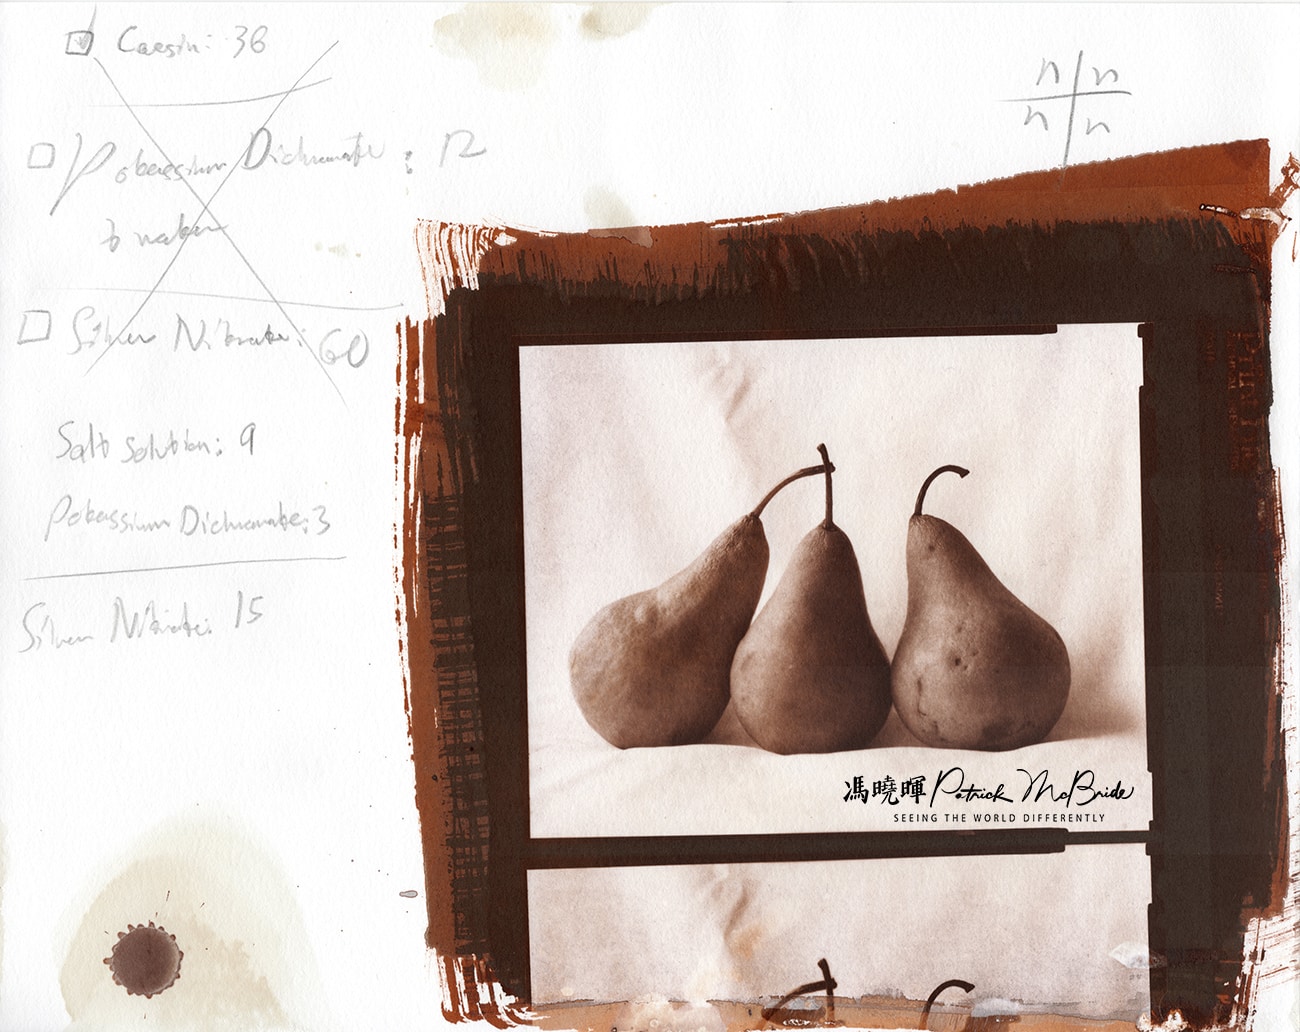 Caesin: 36
n n
n n
Potassium Dichromate: 12
Silver Nitrate: 60
Salt solution: 9
Potassium Dichromate: 3
Silver Nitrate: 15
馮曉暉 Patrick McBride
SEEING THE WORLD DIFFERENTLY